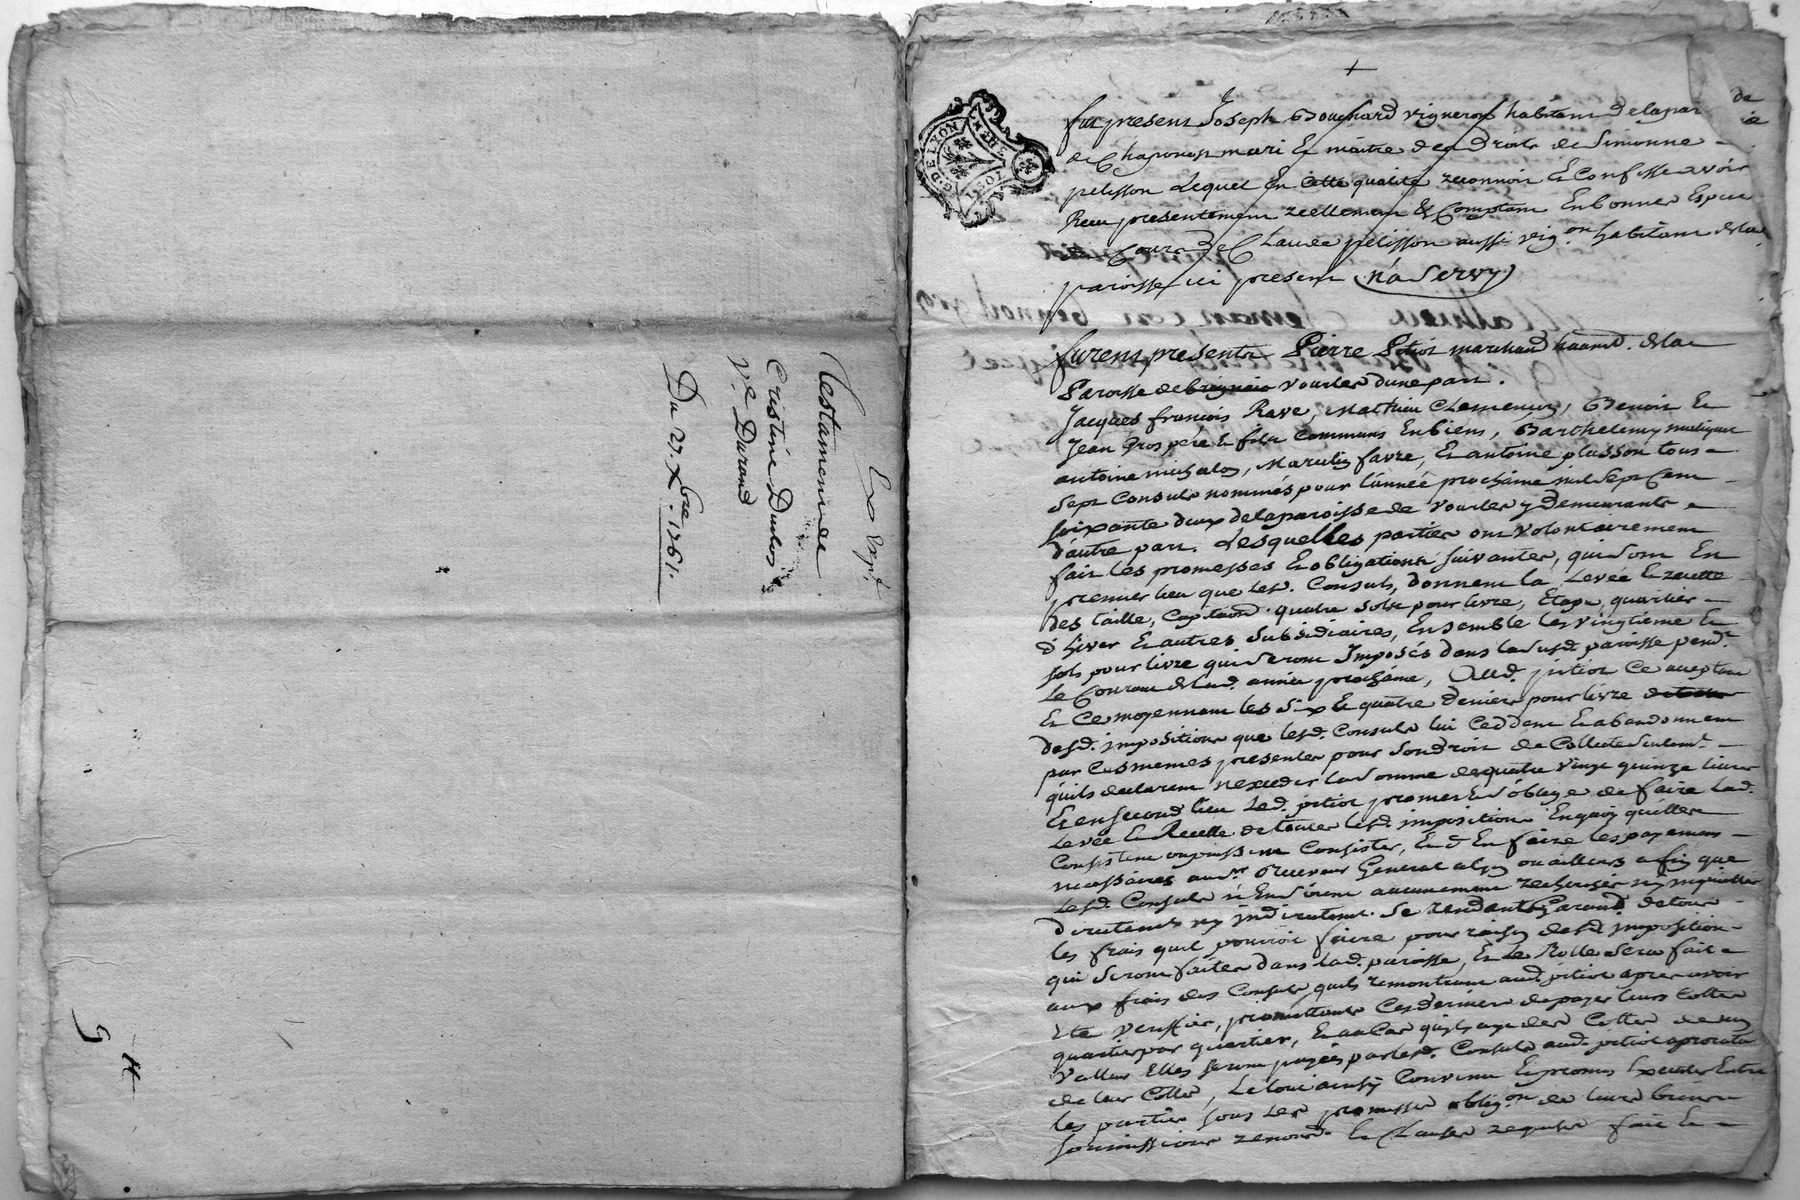 Exp.
Testament de
Cristine Dubos
Ve Durand
Du 27. Xbre. 1761.
G. DE LYON
fut present Joseph Bouchard vigneron habitant de la par de
de Chaponost mari et maitre des droits de Simonne
pelisson Lequel En Cette qualité reconnoit Et Confesse avoir
Receu presentement reellement & Comptant En bonnes Espec
Cours de Claude pelisson aussi vigon habitant de la
paroisse ici present n'a servy
furent presents Pierre Pitiot marchand de la
Paroisse de brignais Vourles d'une part.
Jacques françois Rave, Mathieu Clemençon, Benoit Et
Jean Gros pere Et fils Communs En biens, Barthelemy
antoine michalon, favre, Et antoine plasson tous
Sept Consuls nommés pour L'année prochaine mil Sept Cent
soixante deux de la paroisse de Vourles y demeurants
d'autre part. Lesquelles parties ont volontairement
fait Les promesses Et obligations suivantes, qui sont En
premier Lieu que Lesd. Consuls, donnent La Levée Et recette
des taille, Capitaon. quatre sols pour Livre, Etape, quartier
d'hiver Et autres Subsidiaires, Ensemble Les vingtieme Et
sols pour Livre qui seront Imposés dans La susd. paroisse pendt
Le Courant de lad. année prochaine, Aud. pitiot Ce acceptant
Et Ce moyennant Les six Et quatre deniers pour Livre
desd. impositions que Lesd. Consuls lui Ceddent Et abandonnent
par Ces memes presentes pour son droit de Collecte seulemt.
qu'ils declarent n'exceder La somme de quatre vingt quinze Livres
Et en second Lieu Led. pitiot promet Et s'oblige de faire Lad.
Levée Et Recette de toutes Lesd. impositions En quoy qu'elles
Consistent ou puissent Consister, Et d'En faire Les payemens
necessaires au sr. receveur General a Lyon ou ailleurs afin que
Lesd. Consuls n'En soient aucunement recherchés ny inquietes
directemt ny indirectemt. Se rendant Garand de tous
Les frais quil pourroit faire pour raison desd. impositions
qui seront faites dans Lad. paroisse, Et Le Rolle sera fait
aux frais des Consuls quils remettront aud. pitiot apres avoir
Eté veriffié, promettants Ces derniers de payer Leurs Cottes
quartier par quartier, Et au Cas quil y aye des Cottes de non
valleur Elles seront payées par Lesd. Consuls aud. pitiot aprorata
de Leur Cotte, Le tout ainsy Convenu Et promis Executer Entre
Les parties sous Les promesses obligon de Leurs biens
soumissions renond. Et Clauses requises fait Et